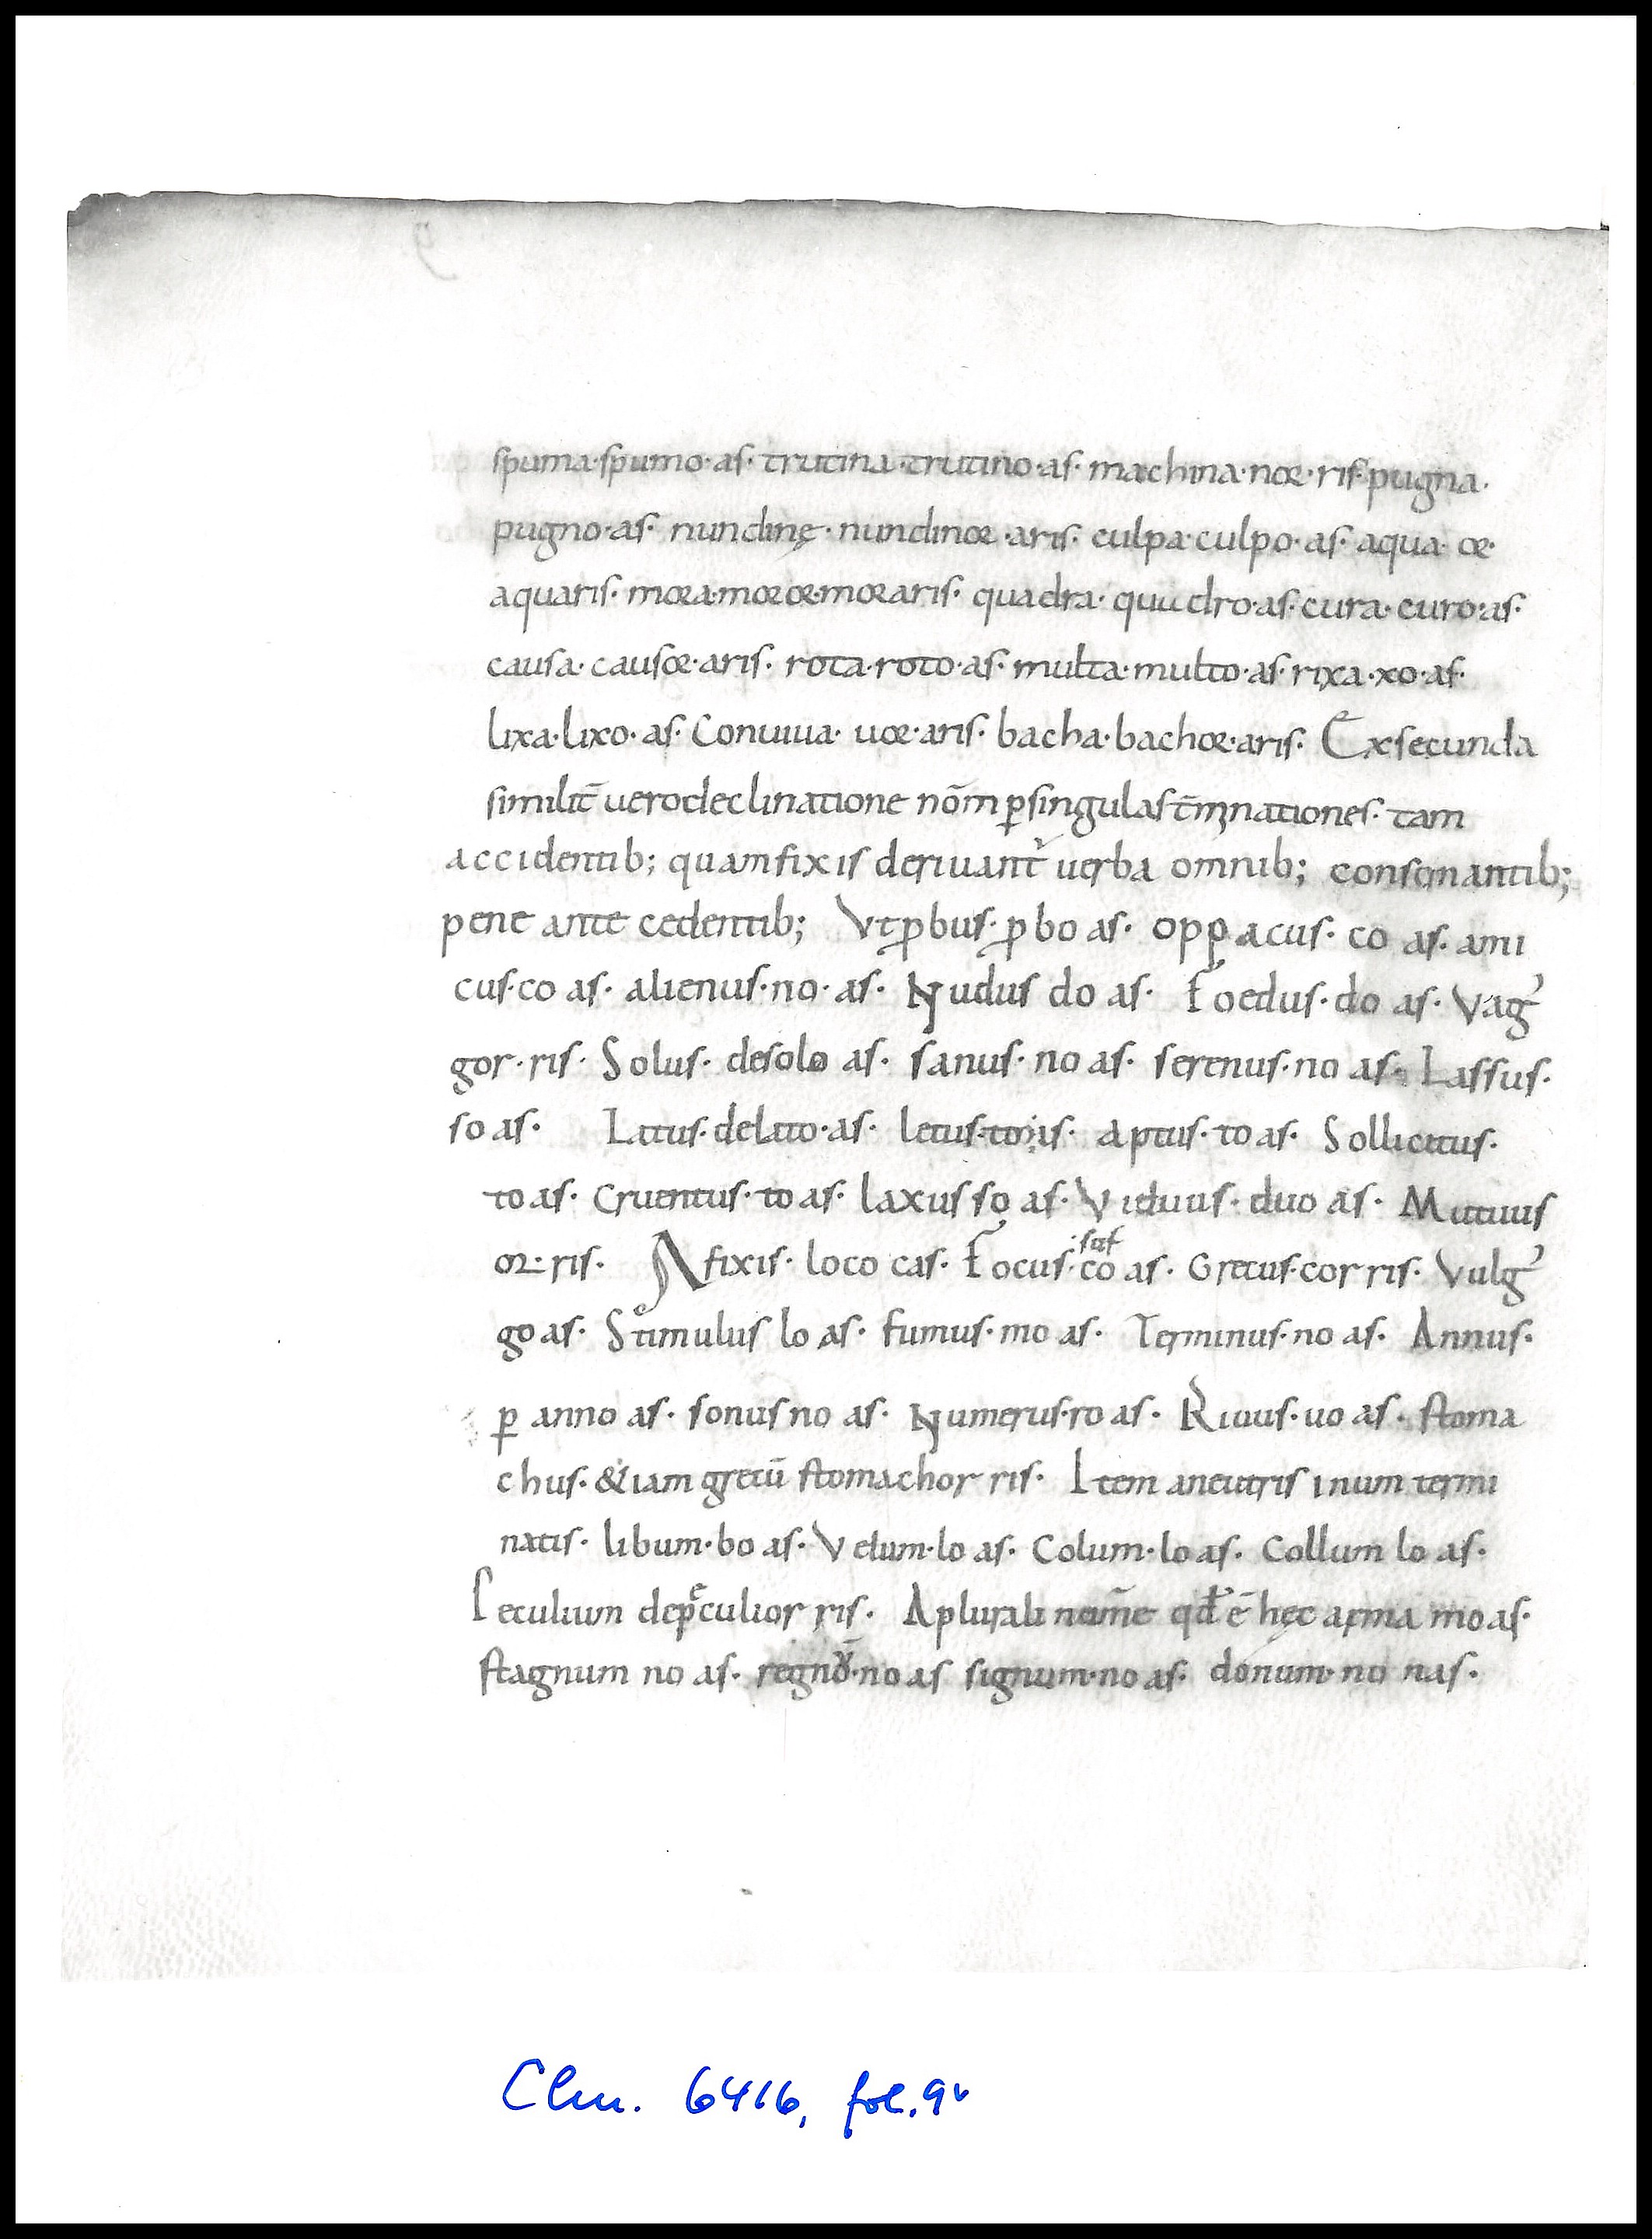 spuma·spumo·as· trutina·trutino·as· machina·nor·ris· pugna·
pugno·as· nundinę·nundinor·aris· culpa·culpo·as· aqua·or·
aquaris· mora·moror·moraris· quadra· quudro·as· cura·curo·as·
causa·causor·aris· rota·roto·as· multa·multo·as· rixa·xo·as·
lixa·lixo·as· Conuiua·uor·aris· bacha·bachor·aris· Exsecunda
similit̄ uerodeclinatione nōm ꝑsingulas t̄mnationes· tam
accidentib; quamfixis deriuant᷑ uerba omnib; consonantib;
pene ante cedentib; Vt ꝓbus· ꝓbo as· opꝑacus· co as· ami
cus·co as· alienus·no·as· Nudus do as· Foedus·do as· Vagꝰ
gor·ris· Solus· desolo as· sanus·no as· serenus·no as· Lassus·
so as· Latus·delato·as· letus·toris· aptus·to as· Sollicitus·
to as· Cruentus·to as· laxus so as· Viduus·duo as· Mutuus
or·ris· Afixis· loco cas· Focus·co as· Grecus·cor ris· Vulgꝰ
go as· Stimulus lo as· fumus·mo as· Terminus·no as· Annus·
ꝑ anno as· sonus no as· Numerus·ro as· Riuus·uo as· stoma
chus· &iam grecū stomachor ris· Item aneutris inum termi
natis· libum·bo as· Velum·lo as· Colum·lo as· Collum lo as·
Peculium depeculior ris· Aplurali nomīe qđ ē hęc arma mo as·
stagnum no as· regnū·no as signum·no as· donum·no nas·
Clm. 6416, fol. 9v